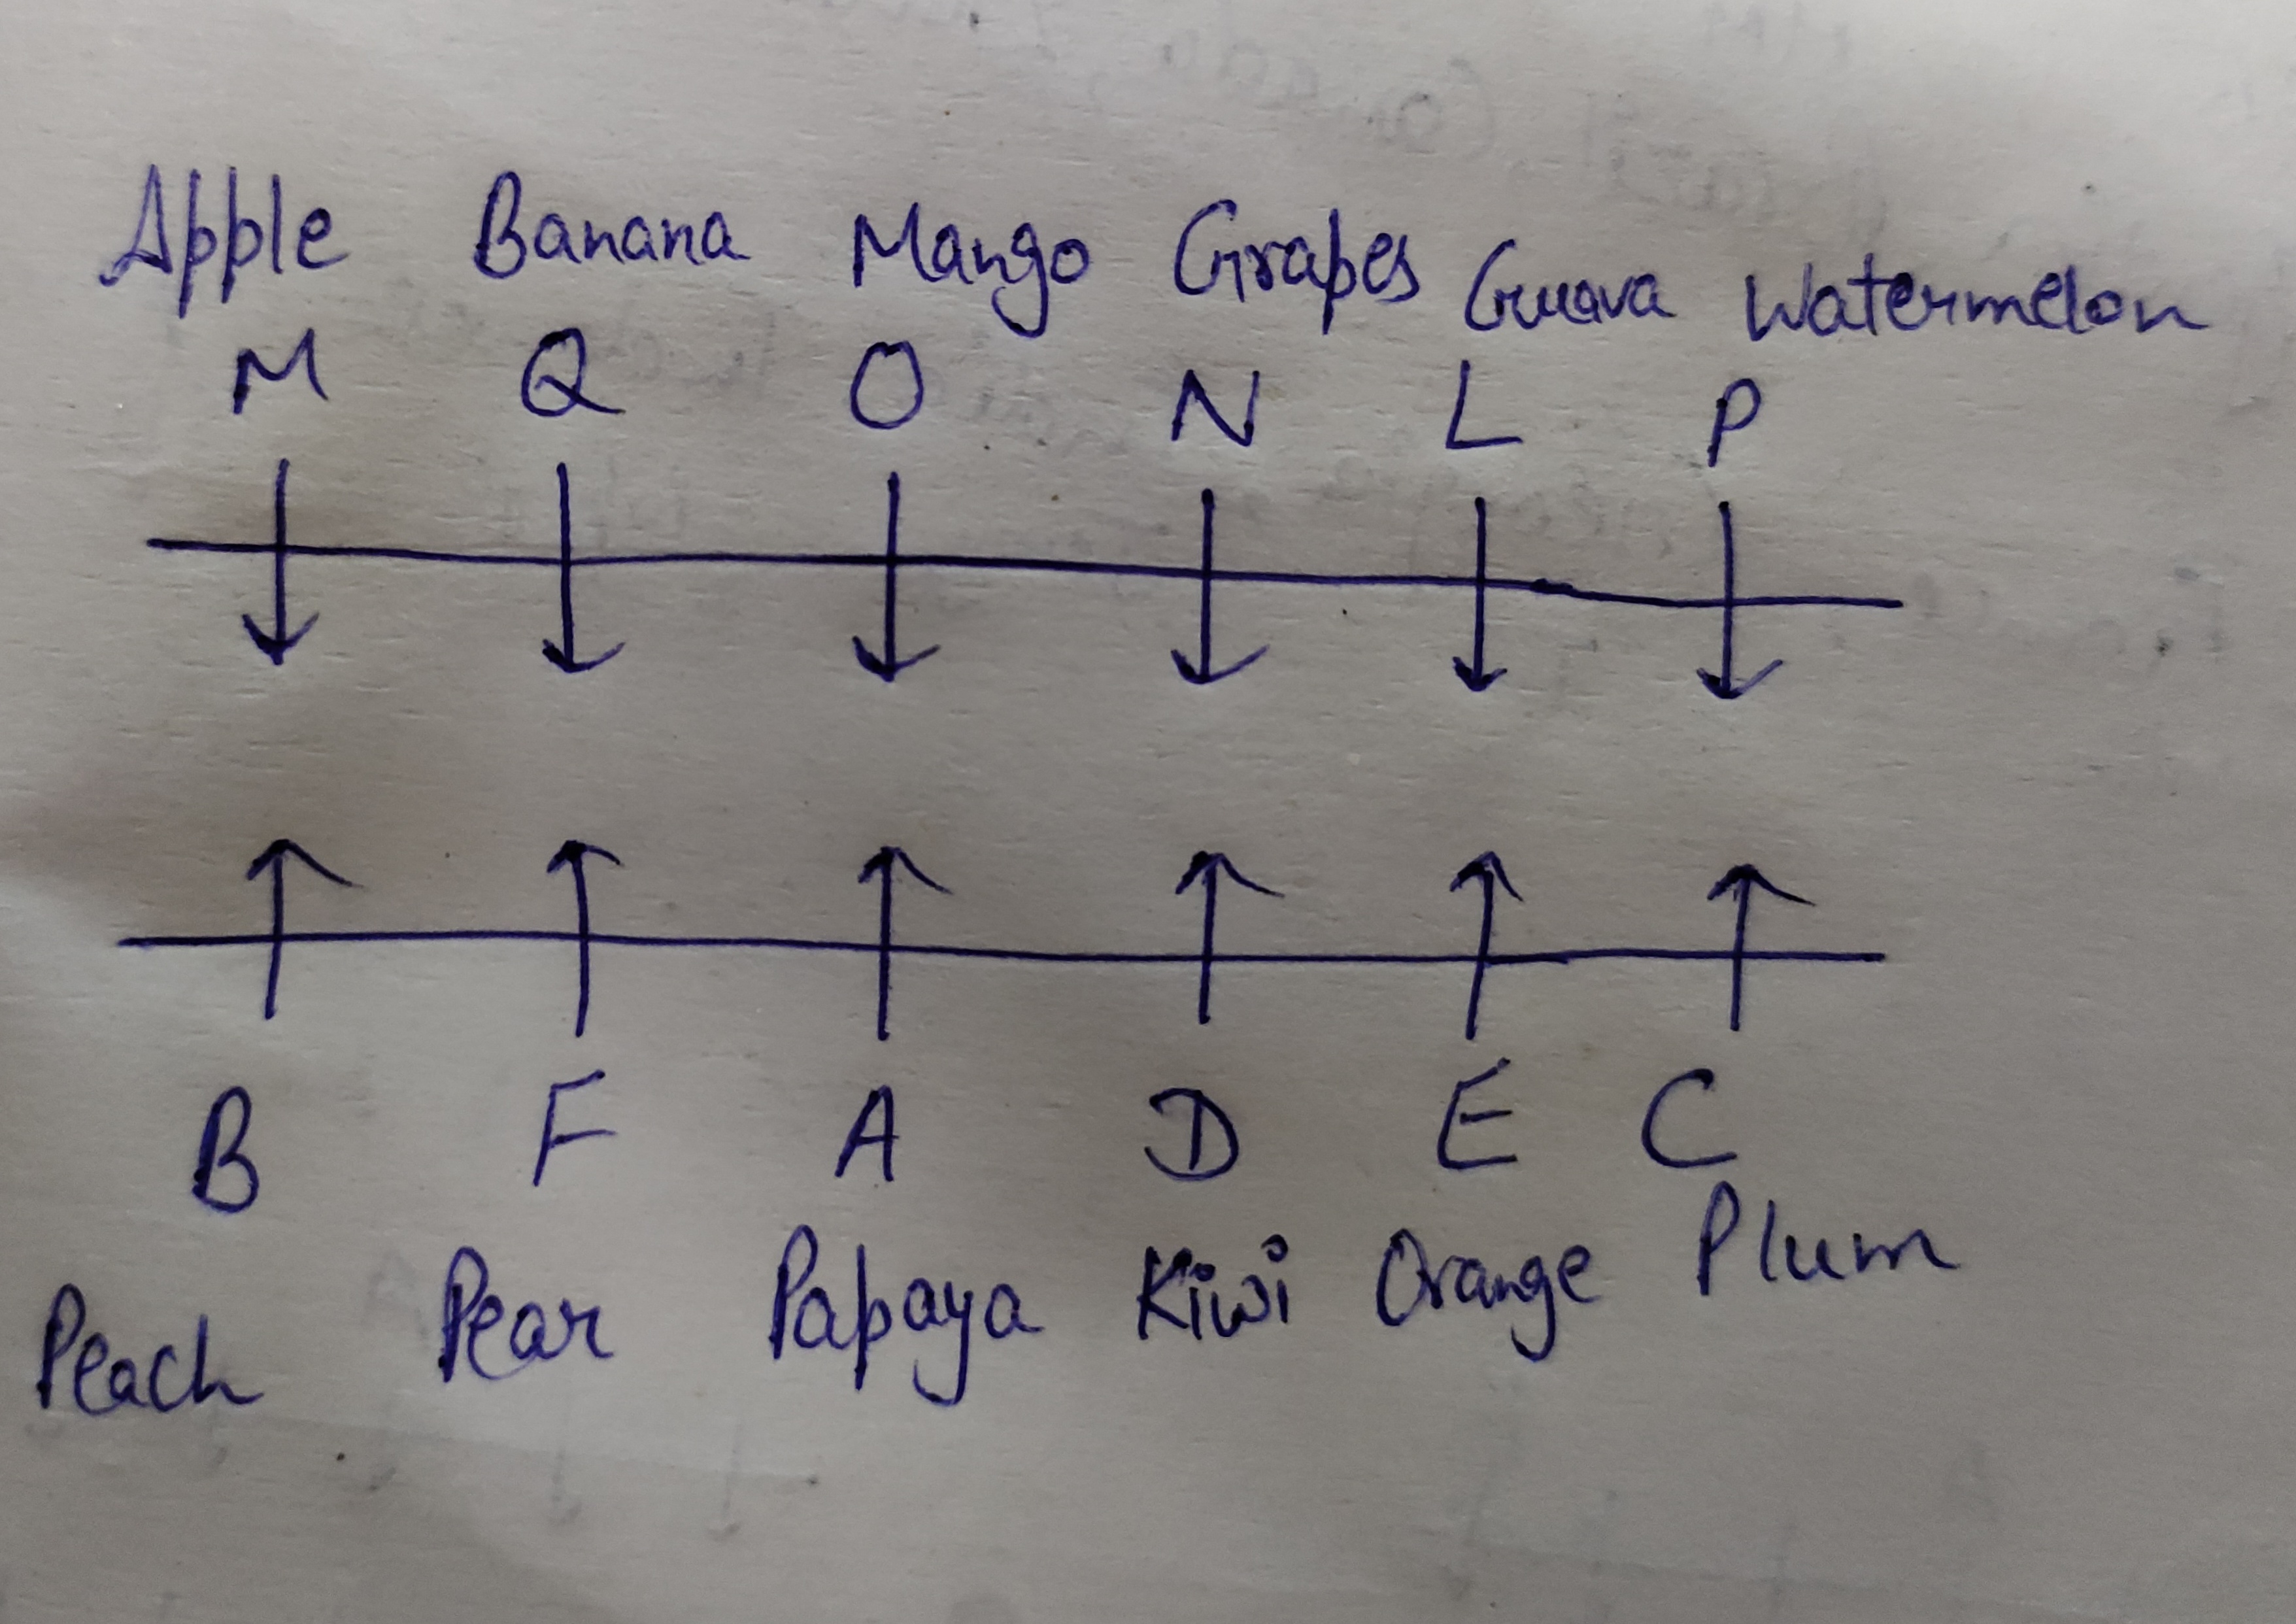 Apple Banana Mango Grapes Guava Watermelon
M Q O N L P
B F A D E C
Peach Pear Papaya Kiwi Orange Plum